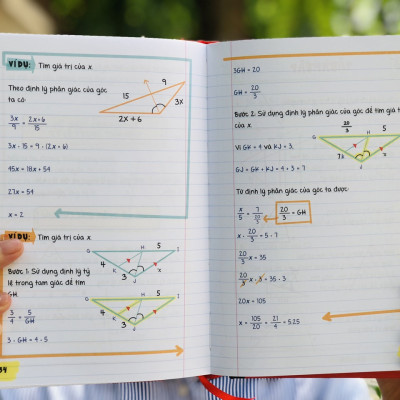 VÍ DỤ: Tìm giá trị của x.
Theo định lý phân giác của góc
ta có:
9
15
3x
2x + 6
3x/9 = (2x + 6)/15
3x · 15 = 9 · (2x + 6)
45x = 18x + 54
27x = 54
x = 2
VÍ DỤ: Tìm giá trị của x.
G H 5 I
4 K 3 J x
Bước 1: Sử dụng định lý tỷ
lệ trong tam giác để tìm
GH.
G H 5 I
4 K 3 J x
3/4 = 5/GH
3 · GH = 4 · 5
34
3GH = 20
GH = 20/3
Bước 2: Sử dụng định lý phân giác của góc để tìm giá t
của x.
20/3
G H 5
Vì GK = 4 và KJ = 3,
7 J x
GJ = GK + KJ = 4 + 3 = 7
Từ định lý phân giác của góc ta được:
x/5 = 7/(20/3)
20/3 = GH
x · 20/3 = 5 · 7
20/3 x = 35
20/3 x · 3 = 35 · 3
20x = 105
x = 105/20 = 21/4 = 5.25